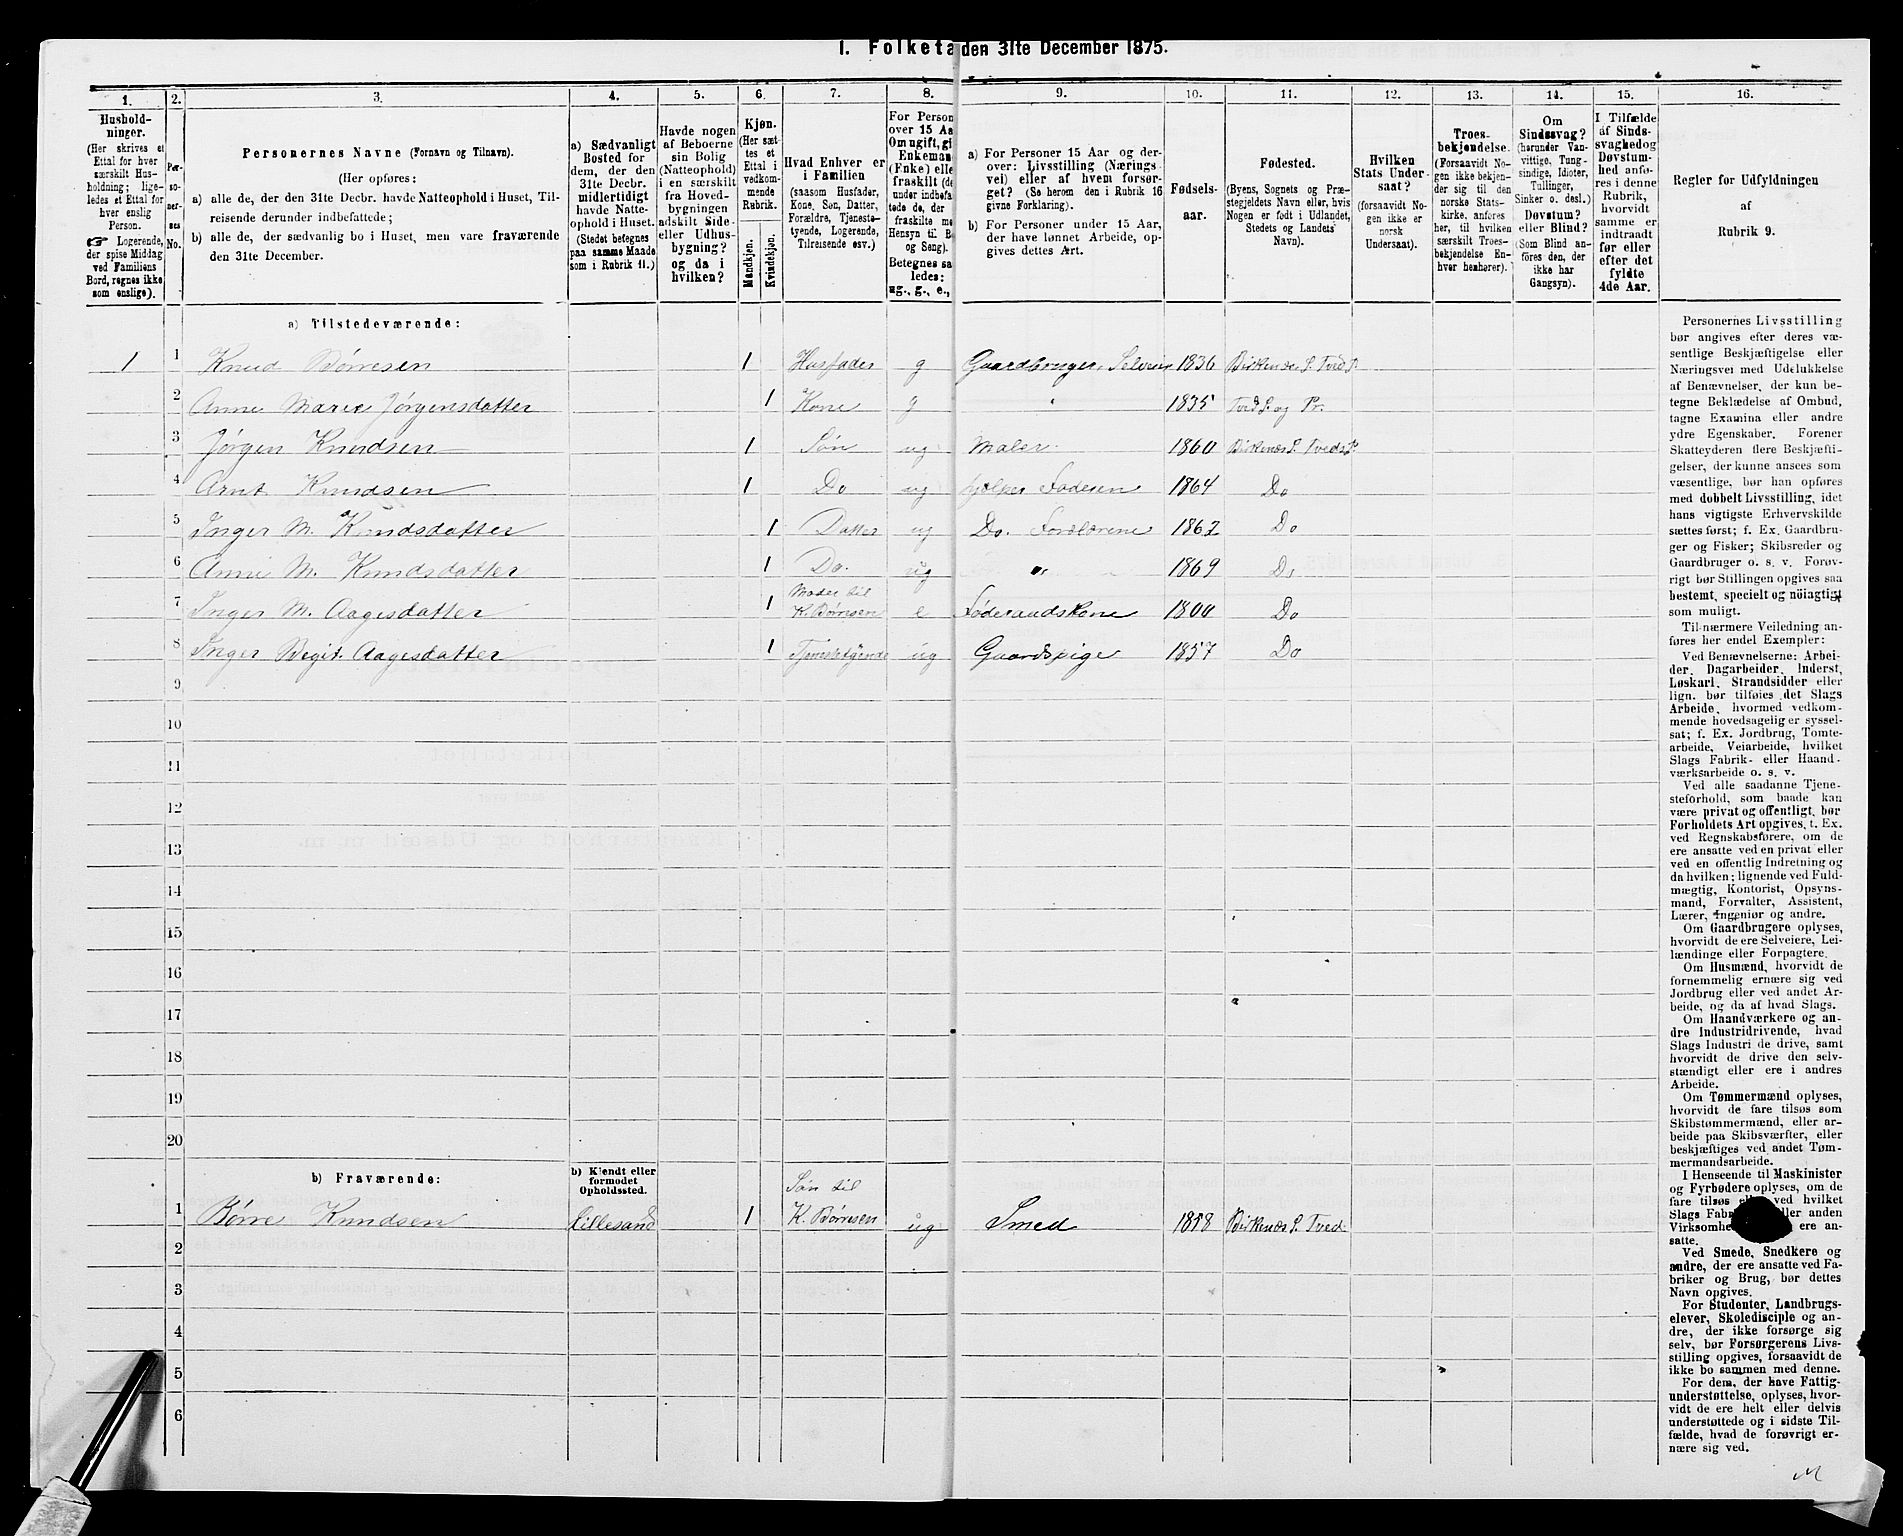 I. Folketa den 31te December 1875.
1. 2. 3. 4. 5. 6. 7. 8. 9. 10. 11. 12. 13. 14. 15. 16.
Hushold-
ninger.
(Her skrives et
Ettal for hver
særskilt Hus-
holdning; lige-
ledes et Ettal for
hver enslig
Person.
☞ Logerende,
der spise Middag
ved Familiens
Bord, regnes ikke
som enslige).
Per-
so-
ner-
nes
No.
Personernes Navne (Fornavn og Tilnavn).
(Her opføres:
a) alle de, der den 31te Decbr. havde Natteophold i Huset, Til-
reisende derunder indbefattede;
b) alle de, der sædvanlig bo i Huset, men vare fraværende
den 31te December.
a) Sædvanligt
Bosted for
dem, der den
31te Decbr.
midlertidigt
havde Natte-
ophold i Huset.
(Stedet betegnes
paa samme Maade
som i Rubrik 11.)
Havde nogen
af Beboerne
sin Bolig
(Natteophold)
i en særskilt
fra Hoved-
bygningen
adskilt Side-
eller Udhus-
bygning?
og da i
hvilken?
Kjøn.
(Her sæt-
tes et
Ettal i
vedkom-
mende
Rubrik.
Mandkjøn.
Kvindekjøn.
Hvad Enhver er
i Familien
(saasom Husfader,
Kone, Søn, Datter,
Forældre, Tjeneste-
tyende, Logerende,
Tilreisende osv.)
For Person
over 15 Aa
Om ugift, gi
Enkeman
(Enke) elle
fraskilt (de
under indbefa
tede de, de
fraskilte me
Hensyn til B
og Seng).
Betegnes sa
ledes:
ug., g., e.,
a) For Personer 15 Aar og der-
over: Livsstilling (Nærings
vei) eller af hvem forsør-
get? (Se herom den i Rubrik 16
givne Forklaring).
b) For Personer under 15 Aar,
der have lønnet Arbeide, op-
gives dettes Art.
Fødsels-
aar.
Fødested.
(Byens, Sognets og Præ-
stegjeldets Navn eller, hvis
Nogen er født i Udlandet,
Stedets og Landets
Navn).
Hvilken
Stats Under-
saat?
(forsaavidt No-
gen ikke er
norsk
Undersaat).
Troes-
bekjendelse.
(Forsaavidt No-
gen ikke bekjen-
der sig til den
norske Stats-
kirke, anføres
her, til hvilken
særskilt Troes-
bekjendelse En-
hver henhører).
Om
Sindssvag?
(herunder Van-
vittige, Tung-
sindige, Idioter,
Tullinger,
Sinker o. desl.)
Døvstum?
eller Blind?
(Som Blind an-
föres den, der
ikke har
Gangsyn).
I Tilfælde
af Sinds-
svaghed og
Døvstum-
hed anfø-
res i denne
Rubrik,
hvorvidt
samme er
indtraadt
før eller
efter det
fyldte
4de Aar.
Regler for Udfyldningen
af
Rubrik 9.
a) Tilstedeværende:
1 1 Knud Børresen 1 Husfader g Gaardbruger, Selveier 1836 Birkenæs S. Tved P.
2 Anne Marie Jørgensdatter 1 Kone g " 1835 Tved S. og Pr.
3 Jørgen Knudsen 1 Søn ug Maler 1860 Birkenæs S. Tveds P.
4 Arnt Knudsen 1 Do ug hjelper Faderen 1864 Do
5 Inger M. Knudsdatter 1 Datter ug Do. Forældrene 1862 Do
6 Anne M. Knudsdatter 1 Do. ug " 1869 Do
7 Inger M. Aagesdatter 1 Moder til K. Børresen e Føderaadskone 1800 Do
8 Inger Begit. Aagesdatter 1 Tjenestetyende ug Gaardspige 1857 Do
9
10
11
12
13
14
15
16
17
18
19
20
b) Fraværende:
b) Kjendt eller
formodet
Opholdssted.
1 Børre Knudsen Lillesand 1 Søn til K. Børresen ug Smed 1858 Birkenæs S. Tved
2
3
4
5
6
Personernes Livsstilling
bør angives efter deres væ-
sentlige Beskjæftigelse eller
Næringsvei med Udelukkelse
af Benævnelser, der kun be-
tegne Beklædelse af Ombud,
tagne Examina eller andre
ydre Egenskaber. Forener
Skatteyderen flere Beskjæfti-
gelser, der kunne ansees som
væsentlige, bør han opføres
med dobbelt Livsstilling, idet
hans vigtigste Erhvervskilde
sættes først; f. Ex. Gaardbru-
ger og Fisker; Skibsreder og
Gaardbruger o. s. v. Forøv-
rigt bør Stillingen opgives saa
bestemt, specielt og nöiagtigt
som muligt.
Til nærmere Veiledning an-
føres her endel Exempler:
Ved Benævnelserne: Arbei-
der, Dagarbeider, Inderst,
Løskarl, Strandsidder eller
lign. bør tilføies det Slags
Arbeide, hvormed vedkom-
mende hovedsagelig er syssel-
sat; f. Ex. Jordbrug, Tomte-
arbeide, Veiarbeide, hvilket
Slags Fabrik- eller Haand-
værksarbeide o. s. v.
Ved alle saadanne Tjene-
steforhold, som baade kan
være privat og offentligt, bør
Forholdets Art opgives, t. Ex.
ved Regnskabsførere, om de
ere ansatte ved en privat eller
ved en offentlig Indretning og
da hvilken; lignende ved Fuld-
mægtig, Kontorist, Opsyns-
mand, Forvalter, Assistent,
Lærer, Ingeniør og andre.
Om Gaardbrugere oplyses,
hvorvidt de ere Selveiere, Lei-
lændinge eller Forpagtere.
Om Husmænd, hvorvidt de
fornemmelig ernære sig ved
Jordbrug eller ved andet Ar-
beide, og da af hvad Slags.
Om Haandværkere og an-
dre Industridrivende, hvad
Slags Industri de drive, samt
hvorvidt de drive den selv-
stændigt eller ere i andres
Arbeide.
Om Tømmermænd oplyses,
hvorvidt de fare tilsøs som
Skibstømmermænd, eller ar-
beide paa Skibsværfter, eller
beskjæftiges ved andet Tøm-
mermandsarbeide.
I Henseende til Maskinister
og Fyrbødere oplyses, om de
fare tilsøs ved hvilket
Slags Fab eller anden
Virksomhe ere an-
satte.
Ved Smede, Snedkere og
andre, der ere ansatte ved Fa-
briker og Brug, bør dettes
Navn opgives.
For Studenter, Landbrugs-
elever, Skoledisciple og an-
dre, der ikke forsørge sig
selv, bør Forsørgerens Livs-
stilling opgives, forsaavidt de
ikke bo sammen med denne.
For dem, der have Fattig-
understøttelse, oplyses, hvor-
vidt de ere helt eller delvis
understøttede og i sidste Til-
fælde, hvad de forøvrigt er-
nære sig ved.